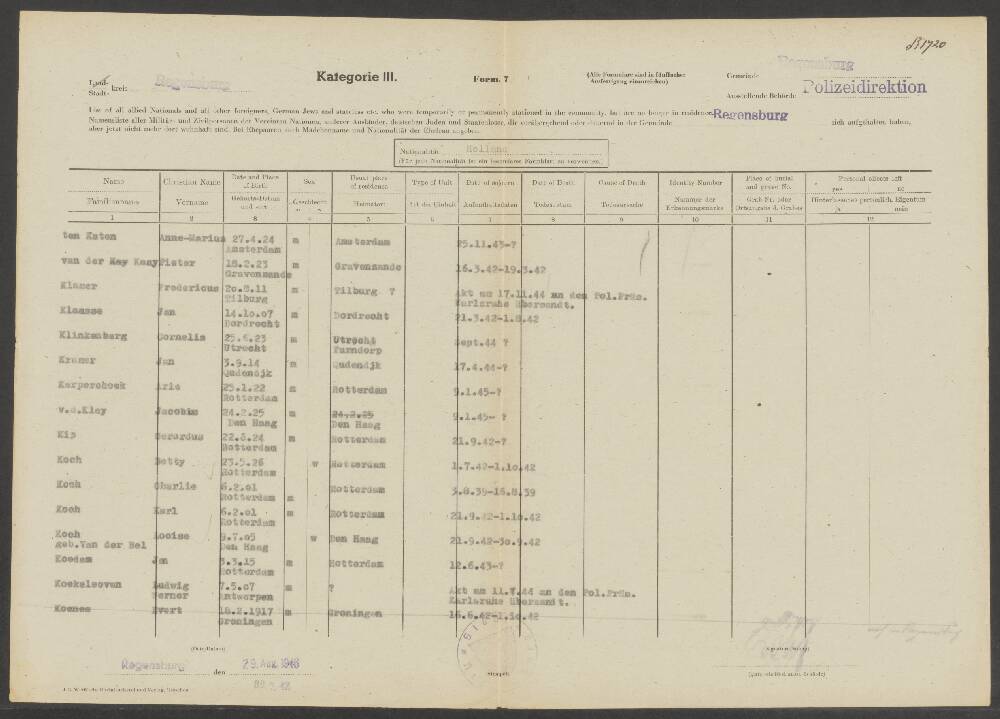 Land-
Stadt- kreis Regensburg
Kategorie III.
Form. 7
(Alle Formulare sind in fünffacher
Ausfertigung einzureichen)
Gemeinde Regensburg
Ausstellende Behörde Polizeidirektion
Regensburg
List of all allied Nationals and all other foreigners, German Jews and stateless etc. who were temporarily or permanently stationed in the community, but are no longer in residence.
Namensliste aller Militär- und Zivilpersonen der Vereinten Nationen, anderer Ausländer, deutscher Juden und Staatenloser, die vorübergehend oder dauernd in der Gemeinde sich aufgehalten haben,
aber jetzt nicht mehr dort wohnhaft sind. Bei Ehepaaren auch Mädchenname und Nationalität der Ehefrau angeben.
Nationalität Holland
(Für jede Nationalität ist ein besonderes Formblatt zu verwenden.)
Name Christian Name Date and Place of Birth Sex Usual place of residence Type of Unit Date of sojourn Date of Death Cause of Death Identity Number Place of burial and grave No. Personal effects left yes no
Familienname Vorname Geburts-Datum und -ort Geschlecht Heimatort Art der Einheit Aufenthaltsdaten Todesdatum Todesursache Nummer der Erkennungsmarke Grab-Nr. oder Ortsangabe d. Grabes Hinterlassenes persönlich. Eigentum ja nein
1 2 3 4 5 6 7 8 9 10 11 12
ten Katen Anne-Marius 27.4.24 m Amsterdam 25.11.43-?
Amsterdam
van der Kay Kaay Pieter 18.2.23 m Gravensande 16.3.42-19.3.42
Gravensande
Klaner Fredericus 20.8.11 m Tilburg ? Akt am 17.11.44 an den Pol.Präs.
Tilburg Karlsruhe übersandt.
Klaasse Jan 14.10.07 m Dordrecht 21.3.42-1.8.42
Dordrecht
Klinkenberg Cornelis 25.6.23 m Utrecht Sept.44 ?
Utrecht Tarndorp
Kramer Jan 3.9.14 m Oudendjk 17.4.44-?
Oudendjk
Karpershoek Arie 25.1.22 m Rotterdam 9.1.45-?
Rotterdam
v.d.Kley Jacobus 24.2.25 m 24.2.25 9.1.45- ?
Den Haag Den Haag
Kip Gerardus 22.8.24 m Rotterdam 21.9.42-?
Rotterdam
Koch Betty 23.5.26 w Rotterdam 1.7.42-1.10.42
Rotterdam
Koch Charlie 6.2.01 Rotterdam 3.8.39-16.8.39
Rotterdam m
Koch Karl 6.2.01 m Rotterdam 21.9.42-1.10.42
Rotterdam
Koch Louise 9.7.05 w Den Haag 21.9.42-30.9.42
geb.Van der Bel Den Haag
Koedam Jan 3.3.15 m Rotterdam 12.6.43-?
Rotterdam
Koekelsoven Ludwig 7.5.07 m ? Akt am 11.7.44 an den Pol.Präs.
Werner Antwerpen Karlsruhe übersandt.
Koenes Evert 18.2.1917 m Groningen 16.6.42-1.10.42
Groningen
Regensburg den 29. Aug. 1946
Stempel: